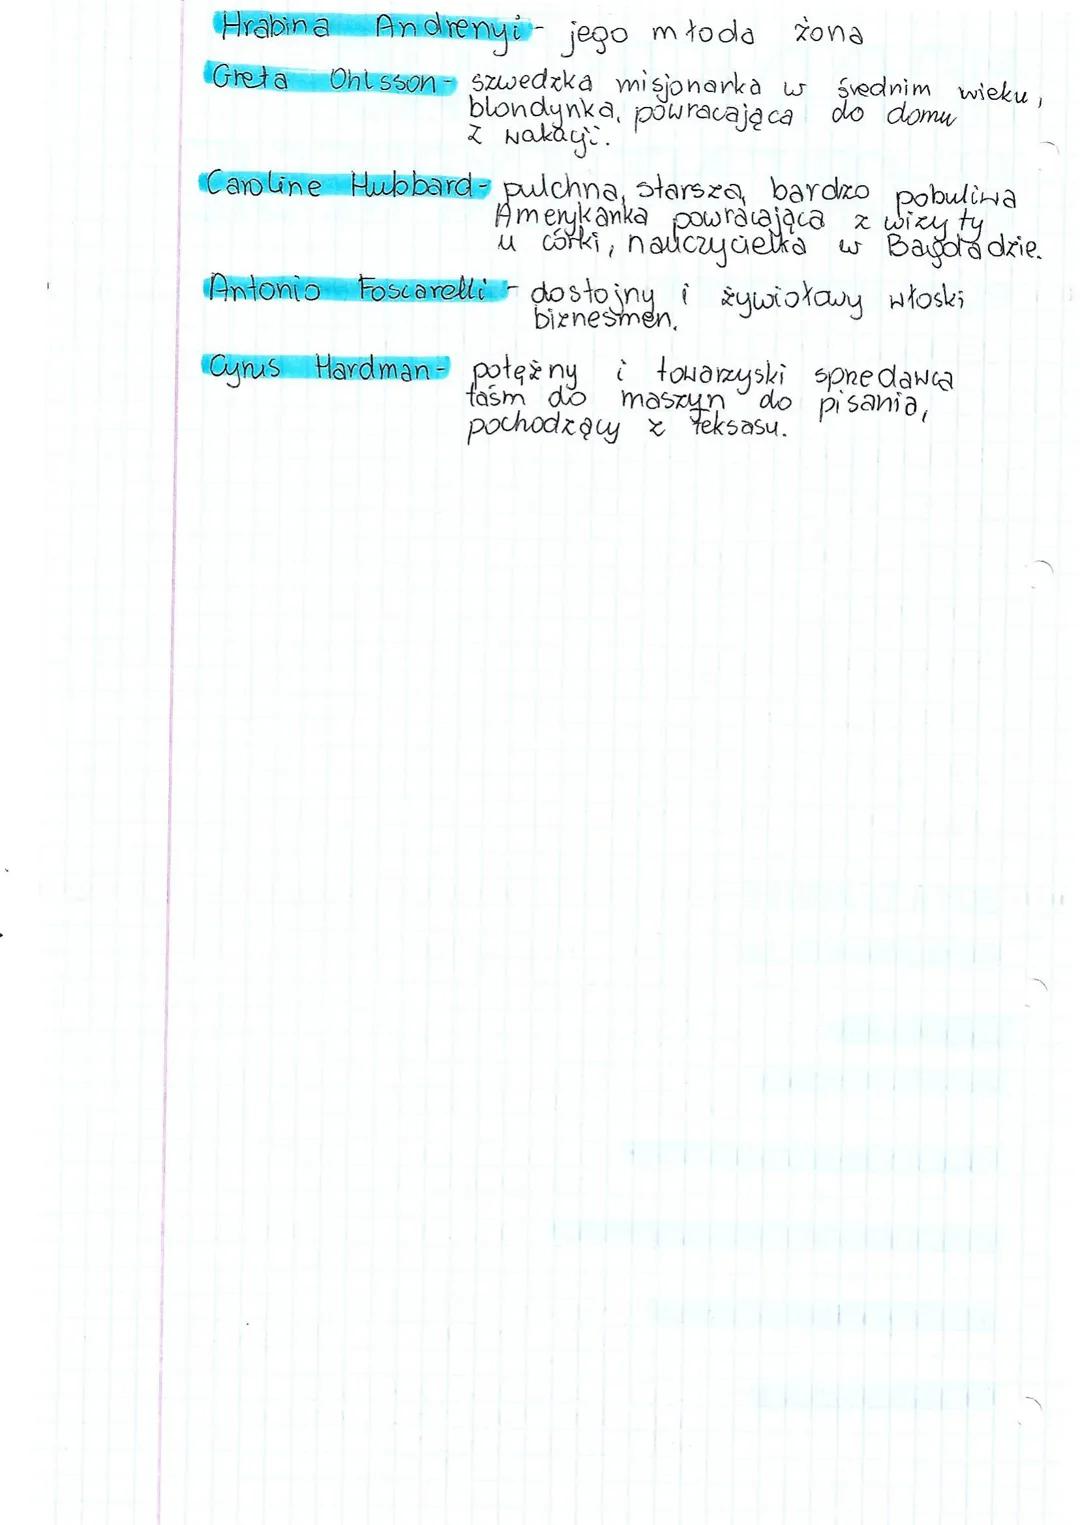 Hrabina Andrenyi - jego młoda żona
Greta Ohlsson - szwedzka misjonarka w średnim wieku,
blondynka, powracająca do domu
z wakacji.
Caroline Hubbard - pulchna, starsza, bardzo pobuliwa
Amerykanka powracająca z wizyty
u córki, nauczycielka w Bagdadzie.
Antonio Foscarelli - dostojny i żywiołowy włoski
biznesmen.
Cyrus Hardman - potężny i towarzyski sprzedawca
taśm do maszyn do pisania,
pochodzący z Teksasu.